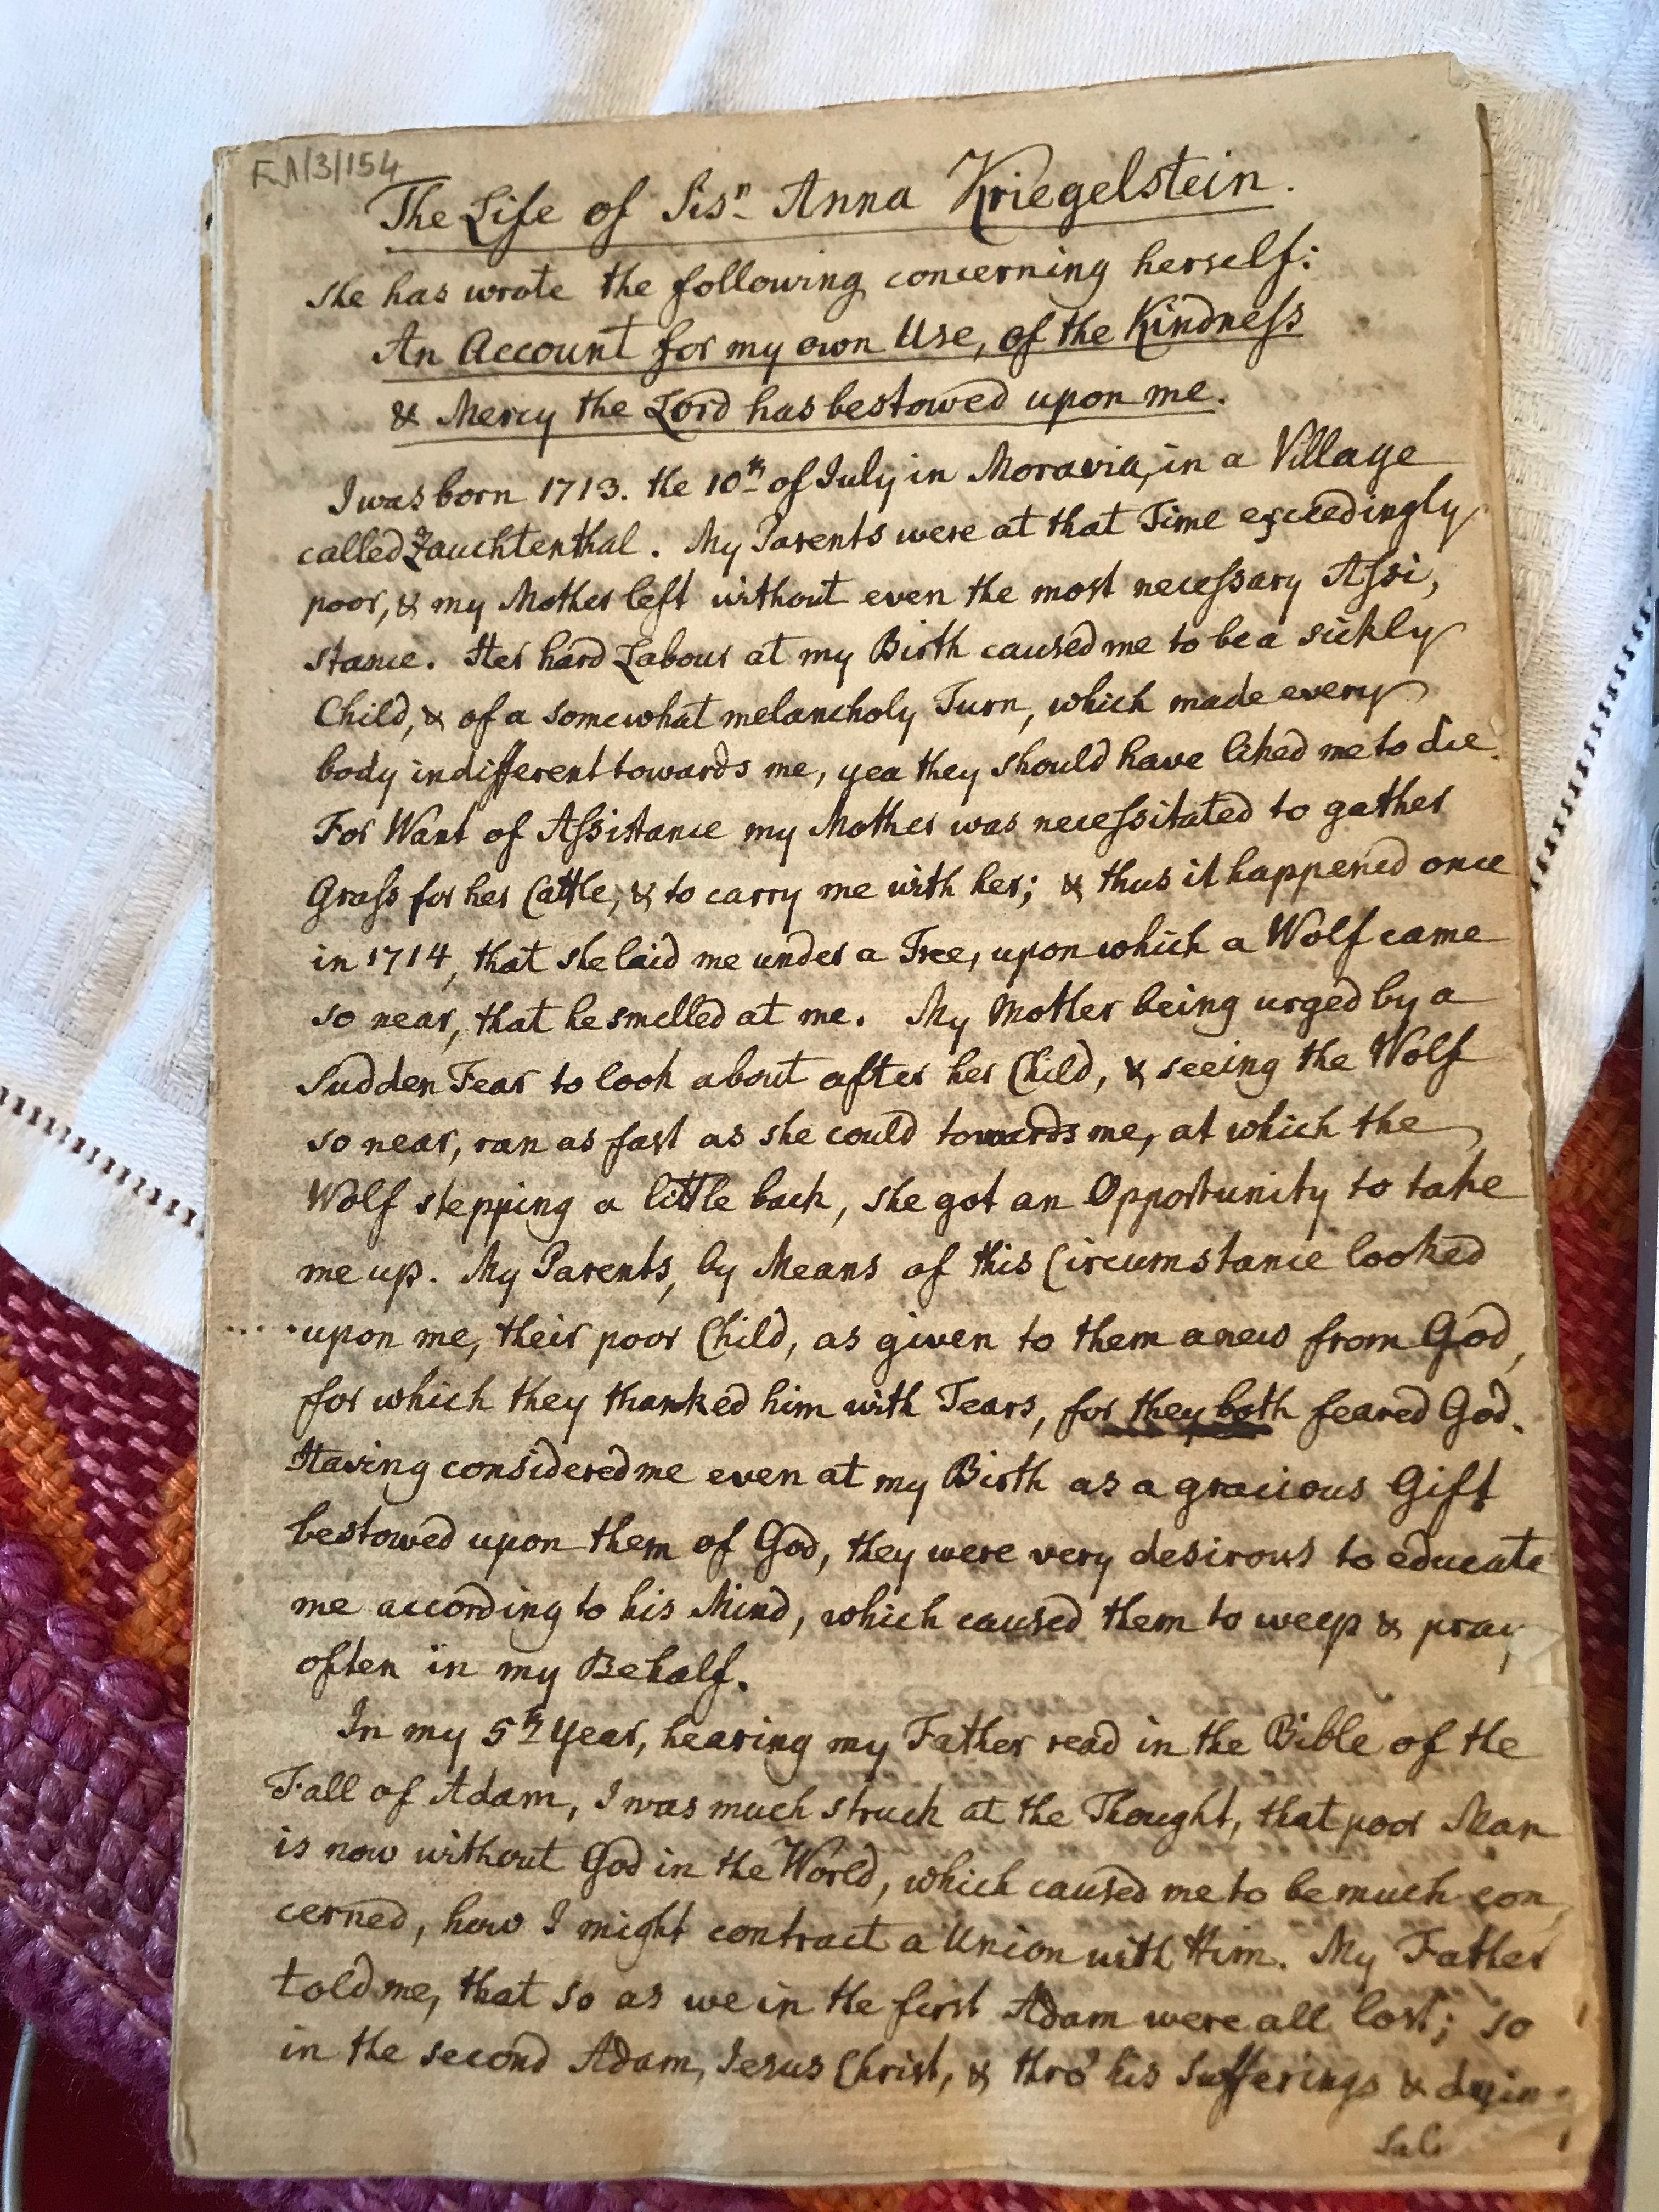 F.1/3/154
The Life of Sisr. Anna Kriegelstein.
She has wrote the following concerning herself:
An Account for my own Use, of the Kindneſs
& Mercy the Lord has bestowed upon me.
I was born 1713. the 10th of July in Moravia, in a Village
called Zauchtenthal. My Parents were at that Time exceedingly
poor, & my Mother left without even the most neceſsary Aſsi,
stance. Her hard Labour at my Birth caused me to be a sickly
Child, & of a somewhat melancholy Turn, which made every
body indifferent towards me, yea they should have liked me to die.
For Want of Aſsistance my Mother was neceſsitated to gather
Graſs for her Cattle, & to carry me with her; & thus it happened once
in 1714, that she laid me under a Tree, upon which a Wolf came
so near, that he smelled at me. My Mother being urged by a
sudden Fear to look about after her Child, & seeing the Wolf
so near, ran as fast as she could towards me, at which the
Wolf stepping a little back, she got an Opportunity to take
me up. My Parents, by Means of this Circumstance looked
upon me, their poor Child, as given to them anew from God,
for which they thanked him with Tears, for they both feared God.
Having considered me even at my Birth as a gracious Gift
bestowed upon them of God, they were very desirous to educate
me according to his Mind, which caused them to weep & pray
often in my Behalf.
In my 5th Year, hearing my Father read in the Bible of the
Fall of Adam, I was much struck at the Thought, that poor Man
is now without God in the World, which caused me to be much con,
cerned, how I might contract a Union with Him. My Father
told me, that so as we in the first Adam were all lost; so
in the second Adam, Jesus Christ, & thro' his Sufferings &